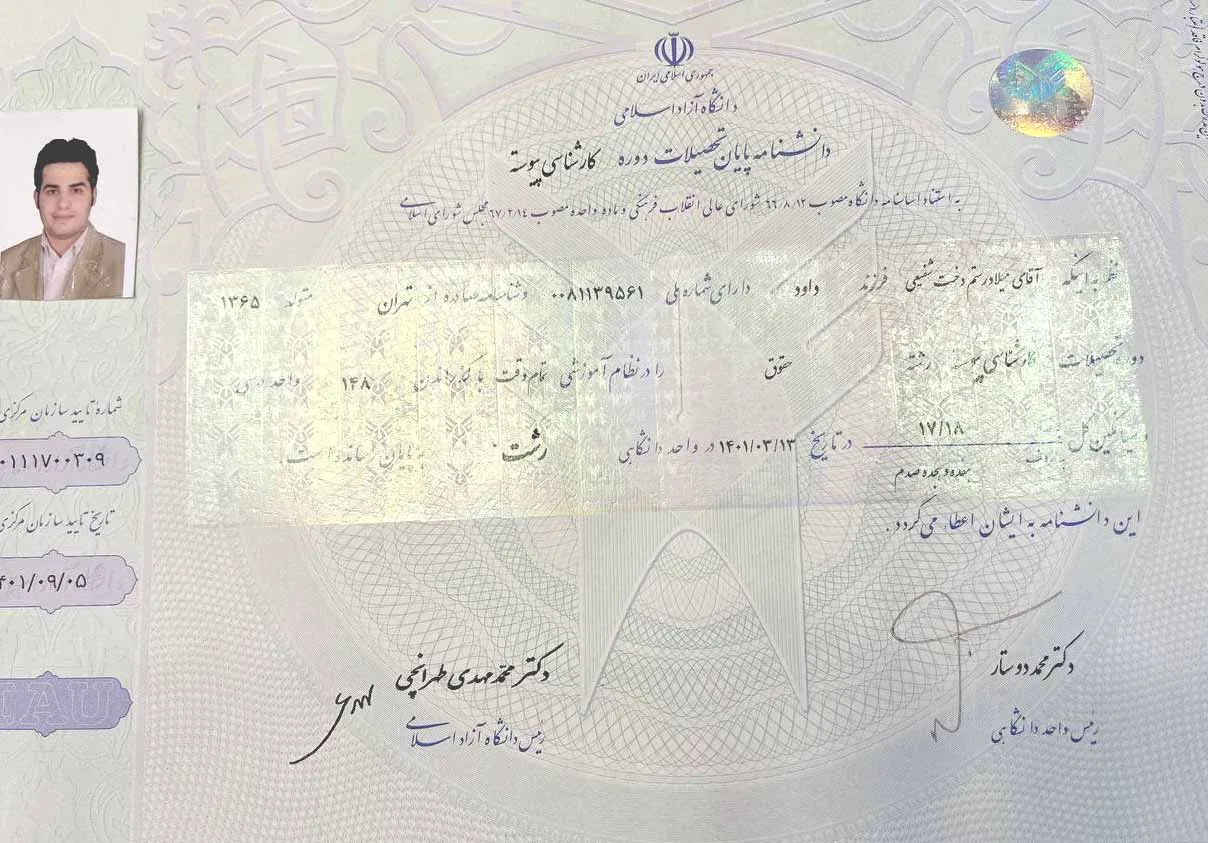 جمهوری اسلامی ایران
دانشگاه آزاد اسلامی
دانشنامه پایان تحصیلات دوره کارشناسی پیوسته
به استناد اساسنامه دانشگاه مصوب ۶۶/۸/۱۲ شورای عالی انقلاب فرهنگی و ماده واحده مصوب ۶۷/۲/۱۴ مجلس شورای اسلامی
نظر به اینکه آقای میلاد رستم دخت شفیعی فرزند داود دارای شماره ملی ۰۰۸۱۱۳۹۵۶۱ و شناسنامه صادره از تهران متولد ۱۳۶۵
دوره تحصیلات کارشناسی پیوسته رشته حقوق را در نظام آموزشی تمام وقت با گذراندن ۱۴۸ واحد درسی
و میانگین کل ۱۷/۱۸ در تاریخ ۱۴۰۱/۰۳/۱۳ در واحد دانشگاهی رشت به پایان رسانده است.
هفده و هجده صدم
این دانشنامه به ایشان اعطاء می گردد.
شماره تایید سازمان مرکزی
۰۱۱۱۷۰۰۳۰۹
تاریخ تایید سازمان مرکزی
۴۰۱/۰۹/۰۵
IAU
دکتر محمد دوستار
رئیس واحد دانشگاهی
دکتر محمد مهدی طهرانچی
رئیس دانشگاه آزاد اسلامی